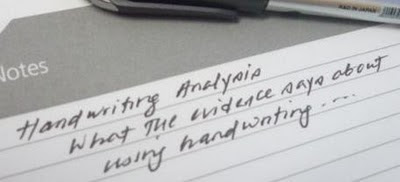 MADE IN JAPAN
Notes
Handwriting Analysis
What The evidence says about
using handwriting....